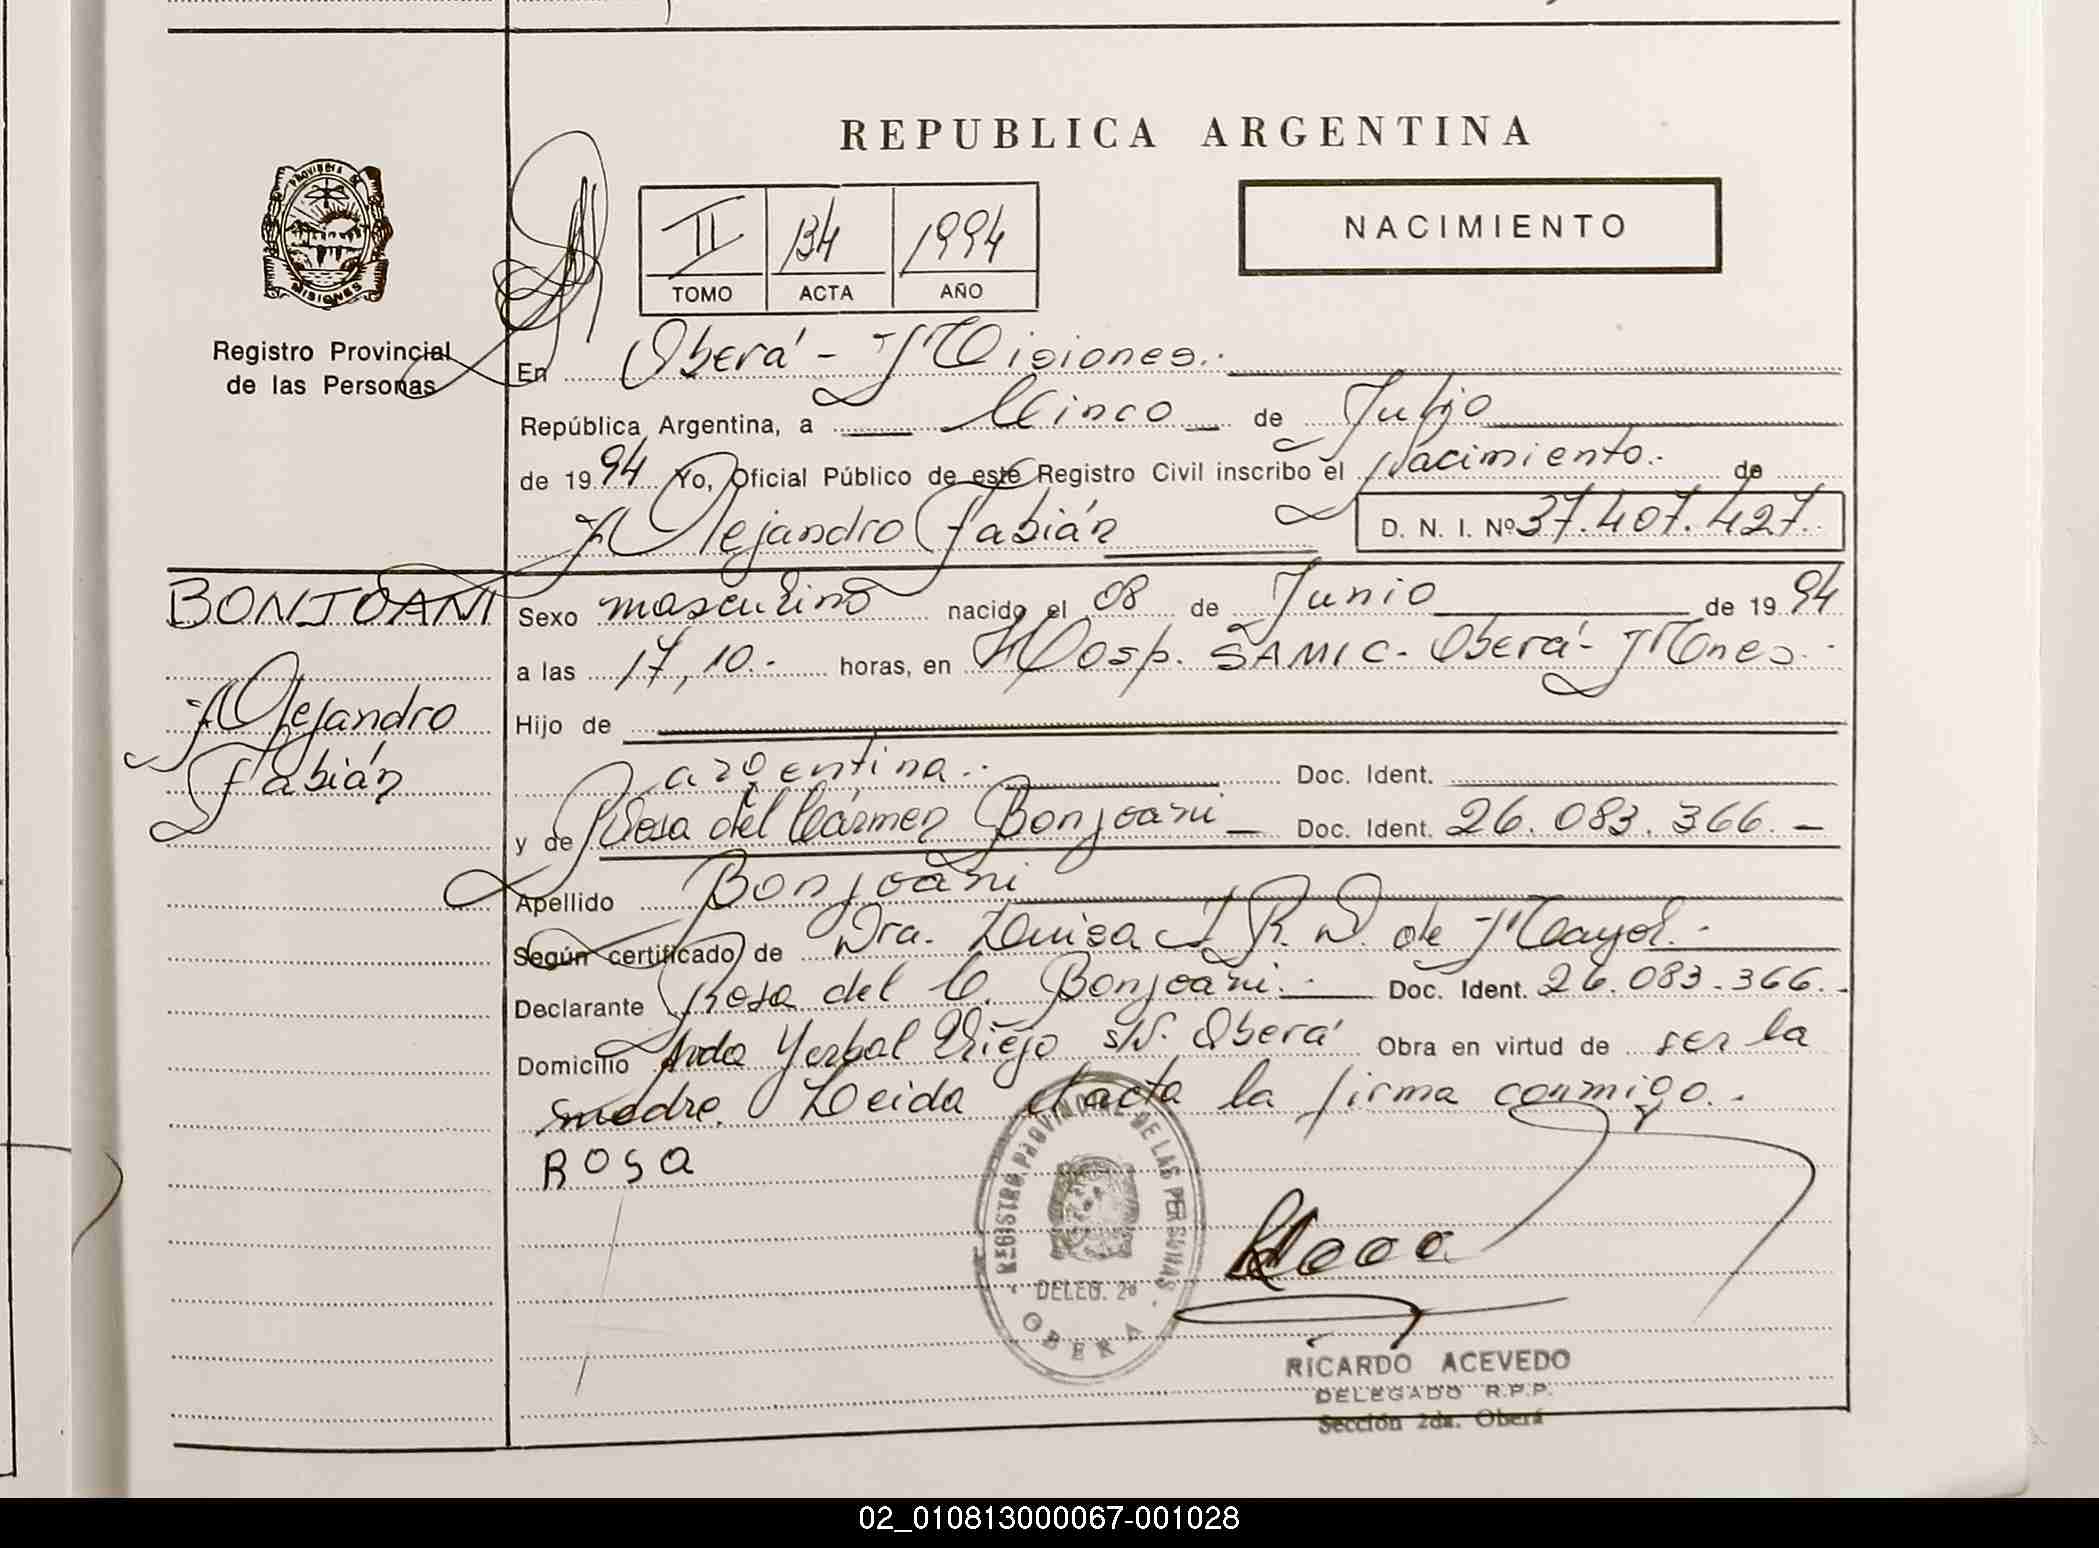 REPUBLICA ARGENTINA
PROVINCIA DE
MISIONES
Registro Provincial
de las Personas
II 134 1994
TOMO ACTA AÑO
NACIMIENTO
En Oberá - Misiones.-
República Argentina, a Cinco de Julio
de 1994 Yo, Oficial Público de este Registro Civil inscribo el Nacimiento.- de
Alejandro Fabián D. N. I. Nº 37.407.427.
BONJOANI
Alejandro
Fabián
Sexo masculino nacido el 08 de Junio de 1994
a las 17,10.- horas, en Hosp. SAMIC - Oberá - Mnes.-
Hijo de
argentina.- Doc. Ident.
y de Rosa del Cármen Bonjoani Doc. Ident. 26.083.366.-
Apellido Bonjoani
Según certificado de Dra. Luisa R. D. de Mayol.-
Declarante Rosa del C. Bonjoani.- Doc. Ident. 26.083.366.-
Domicilio Avda Yerbal Viejo s/N. Oberá Obra en virtud de ser la
madre. Leida el acta la firma conmigo.-
ROSA
REGISTRO PROVINCIAL DE LAS PERSONAS
DELEG. 2ª
OBERA
RICARDO ACEVEDO
DELEGADO R.P.P.
Sección 2da. Oberá
02_010813000067-001028